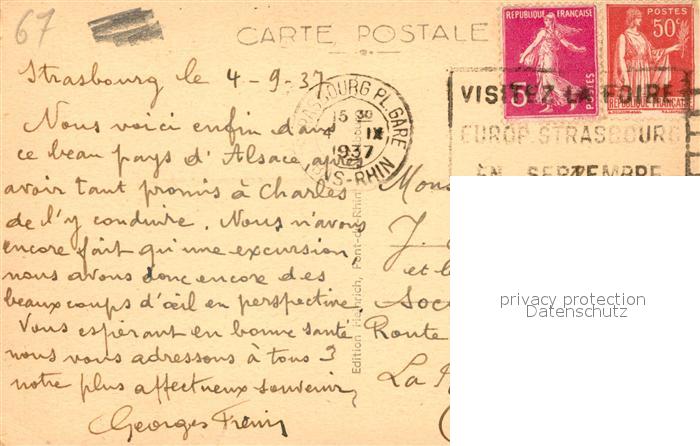 67
CARTE POSTALE
REPUBLIQUE FRANÇAISE
POSTES
5
POSTES
50c
REPUBLIQUE FRANÇAISE
STRASBOURG PL. GARE
15 30
4 IX
1937
BAS-RHIN
VISITEZ LA FOIRE
EUROP. STRASBOURG
EN SEPTEMBRE
Strasbourg le 4-9-37
Nous voici enfin dans
ce beau pays d'Alsace, après
avoir tant promis à Charles
de l'y conduire. Nous n'avons
encore fait qu'une excursion,
nous avons donc encore des
beaux coups d'œil en perspective.
Vous espérant en bonne santé
nous vous adressons à tous 3
notre plus affectueux souvenir,
Georges
Edition Heinrich, Pont-du-Rhin
Mons
J.
et
Soc
Route
La
privacy protection
Datenschutz